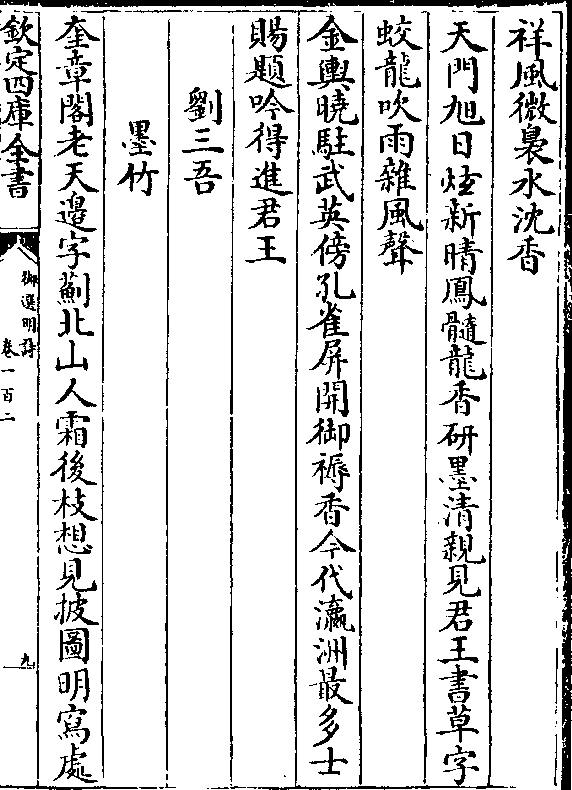 祥風微裊水沈香
天門旭日炫新晴鳳髓龍香研墨清親見君王書草字
蛟龍吹雨雜風聲
金輿曉駐武英傍孔雀屏開御褥香今代瀛洲最多士
賜題吟得進君王
劉三吾
墨竹
奎章閣老天邉字薊北山人霜後枝想見披圖明寫處
欽定四庫全書
御選明詩
卷一百二
九